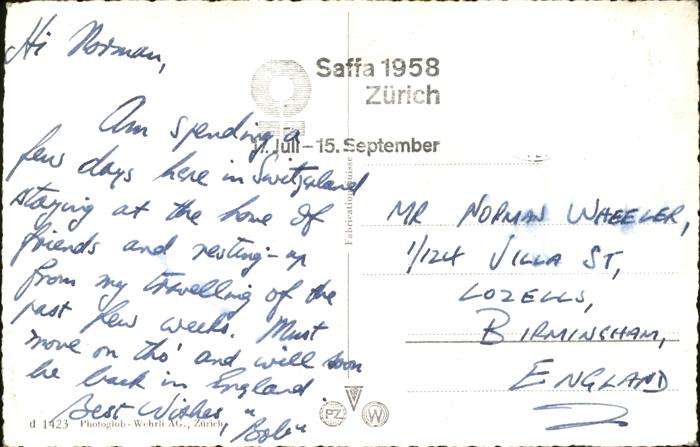 Hi Norman,
Am spending a
few days here in Switzerland
staying at the home of
friends and resting-up
from my travelling of the
past few weeks. Must
move on tho' and will soon
be back in England
Best Wishes,
"Bob"
d 1423 Photoglob-Wehrli AG., Zürich
Fabrication Suisse
Saffa 1958
Zürich
17. Juli – 15. September
MR NORMAN WHEELER,
1/124 VILLA ST,
LOZELLS,
BIRMINGHAM,
ENGLAND
PZ W